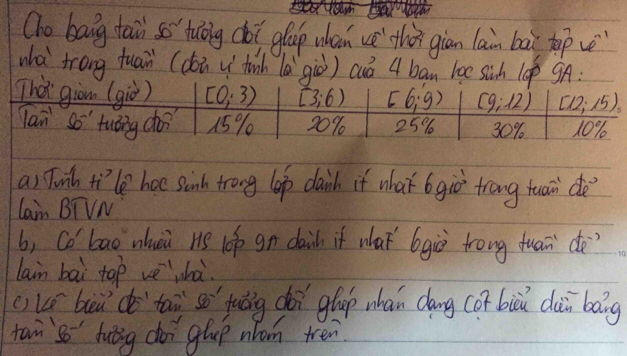 Cho bảng tần số tương đối ghép nhóm về thời gian làm bài tập về
nhà trong tuần (đơn vị tính là giờ) của 4 bạn học sinh lớp 9A:
Thời gian (giờ) | [0; 3) | [3; 6) | [6; 9) | [9; 12) | [12; 15).
Tần số tương đối | 15% | 20% | 25% | 30% | 10%
a) Tính tỉ lệ học sinh trong lớp dành ít nhất 6 giờ trong tuần để
làm BTVN
b, Có bao nhiêu HS lớp 9A dành ít nhất 6 giờ trong tuần để
làm bài tập về nhà.
c) Vẽ biểu đồ tần số tương đối ghép nhóm dạng cột biểu diễn bảng
tần số tương đối ghép nhóm trên.